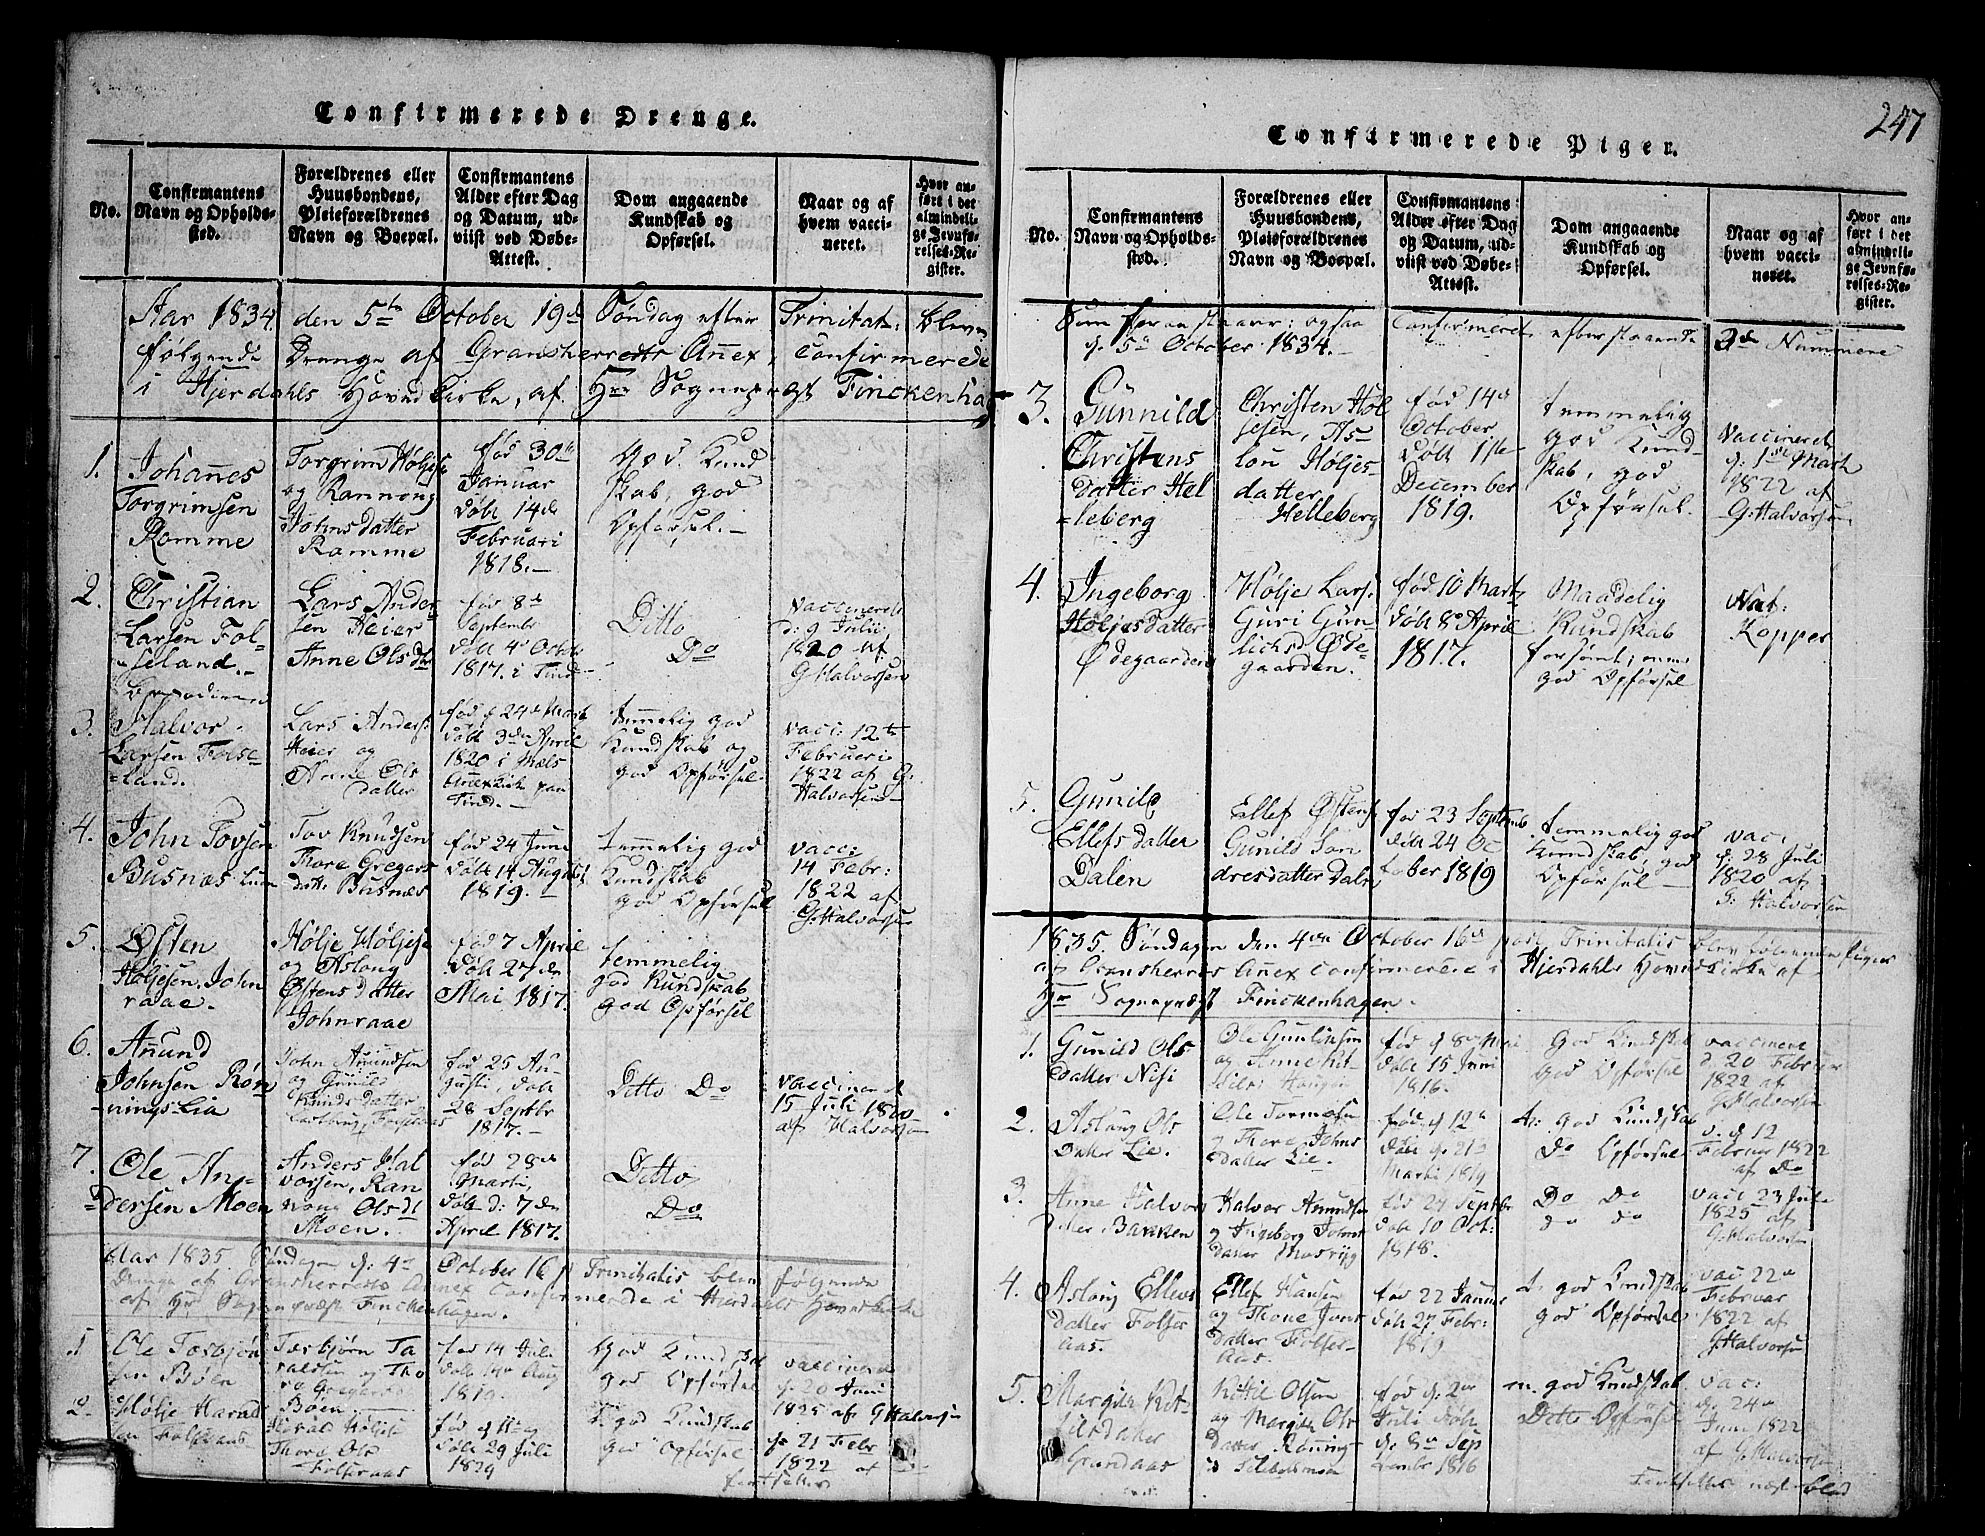 Confirmerede Drenge.
No.
Confirmantens
Navn og Opholds-
sted.
Forældrenes eller
Huusbondens,
Pleieforældrenes
Navn og Boepæl.
Confirmantens
Alder efter Dag
og Datum, ud-
viist ved Døbe-
Attest.
Dom angaaende
Kundskab og
Opførsel.
Naar og af
hvem vacci-
neret.
Hvor an-
ført i det
almindeli-
ge Jevnfø-
relses-Re-
gister.
Aar 1834 den 5te October 19de Søndag efter Trinitat: bleven
følgende Drenge af Gransherreds Anex, confirmerede
i Hjerdahls Hovedkirke, af Hr Sognepræst Finckenhag
1.
Johannes
Torgrimsen
Romme
Torgrim Høljes
og Rannoug
Johnsdatter
Ramme
fød 30te
Januar
døbt 14de
Februari
1818.
God Kund
skab, god
Opførsel.
2.
Christian
Larsen Fol-
seland.
Lars Ander
sen Heier
Anne Olsdtr
fød 8de
Septembr
døbt 4de Octob
1817. i Tind
Ditto
Do
vaccinerede
d: 9 Julii
1820 af
G Halvorsen
3.
Halvor
Larsen Folse-
land.
Lars Anders:
Heier og
Anne Ols
datter
fød d 24de Marti
døbt 3de April
1820 i Mæls
Anexkirke paa
Tind.
temmelig god
Kundskab og
god Opførsel
vacc: 12te
Februari
1822 af G:
Halvorsen
4.
John Tovsen
Busnæs
Tov Knudsen
Thore Gregers
datt: Busnæs
fød 24 Juni
døbt 14 August
1819.
temmelig god
Kundskab
god Opførsel
vacc:
14 Febr:
1822 af
G: Halvorsen
5.
Østen
Høljesen, John
raae.
Hølje Høljese
og Aslong
Østensdatter
Johnraae
fød 7 April
døbt 27de
Mai 1817.
temmelig
god Kundskab
god Opførsel
6.
Anund
Johnsen Røn
nings Lia
John Anundsen
og Gunild
Knudsdatter
fød 25 Au-
gusti, døbt
28 Septbr
1817.
Ditto Do
vaccinerede
15 Juli 1820
af Halvorsen
7.
Ole An-
dersen Moen
Anders Hal
vorsen, Ran
noug Olsdt
Moen.
fød 28de
Marti,
døbt d: 7de
April 1817.
Ditto
Do
Aar 1835. Søndagen d: 4de October 16 p Trinitatis blev følgende
Drenge af Gransherreds Annex confirmerede i Hjerdals Hovedkirke
af Hr Sognepræst Finckenhagen.
1
Ole Torbjørn
sen Bøen
Torbjørn Ta
raldsen og Tho
ra Gregersd
Bøen
fød 14 Juli
døbt 14de Aug
1819.
God Kundskab
god Opførsel
vaccinerede
d. 20 Juni
1825 af G Halvorsen
2.
Hølje Harald
sen Folseraas
Harald Høljes
Thora Ols
Folseraas
døbt 29 Juli
T. god Kundskab
god Opførsel
d. 21 Febr
1822 af
fortsættes
247
Confirmerede Piger.
No.
Confirmantens
Navn og Opholds-
sted.
Forældrenes eller
Huusbondens,
Pleieforældrenes
Navn og Boepæl.
Confirmantens
Alder efter Dag
og Datum, ud-
viist ved Døbe-
Attest.
Dom angaaende
Kundskab og
Opførsel.
Naar og af
hvem vacci-
neret.
Hvor an-
ført i det
almindeli-
ge Jevnfø-
relses-Re-
gister.
Som foran staaer: ogsaa Confirmeret efterstaaende 3de Nummere
d. 5te October 1834.
3.
Gunnild
Christens
datter Hel
leberg
Christen Høl
jesen, As
lou Høljes
datter
Helleberg
fød 14de
October
døbt 1ste
December
1819.
temmelig
god Kund-
skab, god
Opførsel.
Vaccinerede
d: 1ste Marti
1822 af
G: Halvorsen
4.
Ingeborg
Høljesdatter
Ødegaarden
Hølje Lars.
Guri Gun
lichsd Øde-
gaarden.
fød 10 Marti
døbt 8de April
1817.
Maadelig
Kundskab
forsømt; men
god Opførsel
Nat:
Kopper
5.
Gunild
Ellefsdatter
Dalen
Ellef Østens
Gunild Son
dresdatter Dalen
fød 23 Septemb
døbt 24 Oc
tober 1819
temmelig god
Kundskab, god
Opførsel
vac:
d: 28 Juli
1820 af
G: Halvorsen
1835. Søndagen den 4de October 16de post Trinitatis blev følgende Piger
af Gransherreds Anex confirmerede i Hjerdahls Hovedkirke af
Hr Sognepræst Finckenhagen.
1.
Gunild Ols
datter Nisi
Ole Gunliksen
og Anne Kit
fød d 8de Mai
døbt 15 Juni
1816.
God Kundskab
God Opførsel
vaccinere
d 20 Februar
1822 af
G: Halvorsen
2.
Aslaug Ols
datter Lie.
Ole Tormodsen
og Thore Johns
datter Lie
fød d 12te
døbt d. 21de
Marti 1819
t: god Kundskab
Do Opførsel
v: d 12
Februar 1822
af Do
3.
Anne Halvors
datter Bakken
Halvor Anundsen
og Ingeborg Johns
datter
fød 24 Septbr
døbt 10 Oct:
1818.
Do Do
do do
vacc 23 Juli
1825 af
G. Halvorsen
4.
Aslaug Ellevs
datter Folser
aas.
Ellef Hansen
og Thone Jons
datter Folser-
aas.
fød 22 Januar
døbt 27 Febr:
1819
t. god Kundskab
god Opførsel
vac 22de
Februar
1822 af
G. Halvorsen
5.
Margith Kit-
tilsdatter
Grandaas
Kittil Olsen
og Margith Ols
datter Rønning
fød d. 2den
Juli døbt
d. 8de Sep
tembr 1816
m. god Kundskab
Ditto Opførsel
vac:
d. 24de
Juni 1822
af G. Halvorsen
Fortsættes næste blad